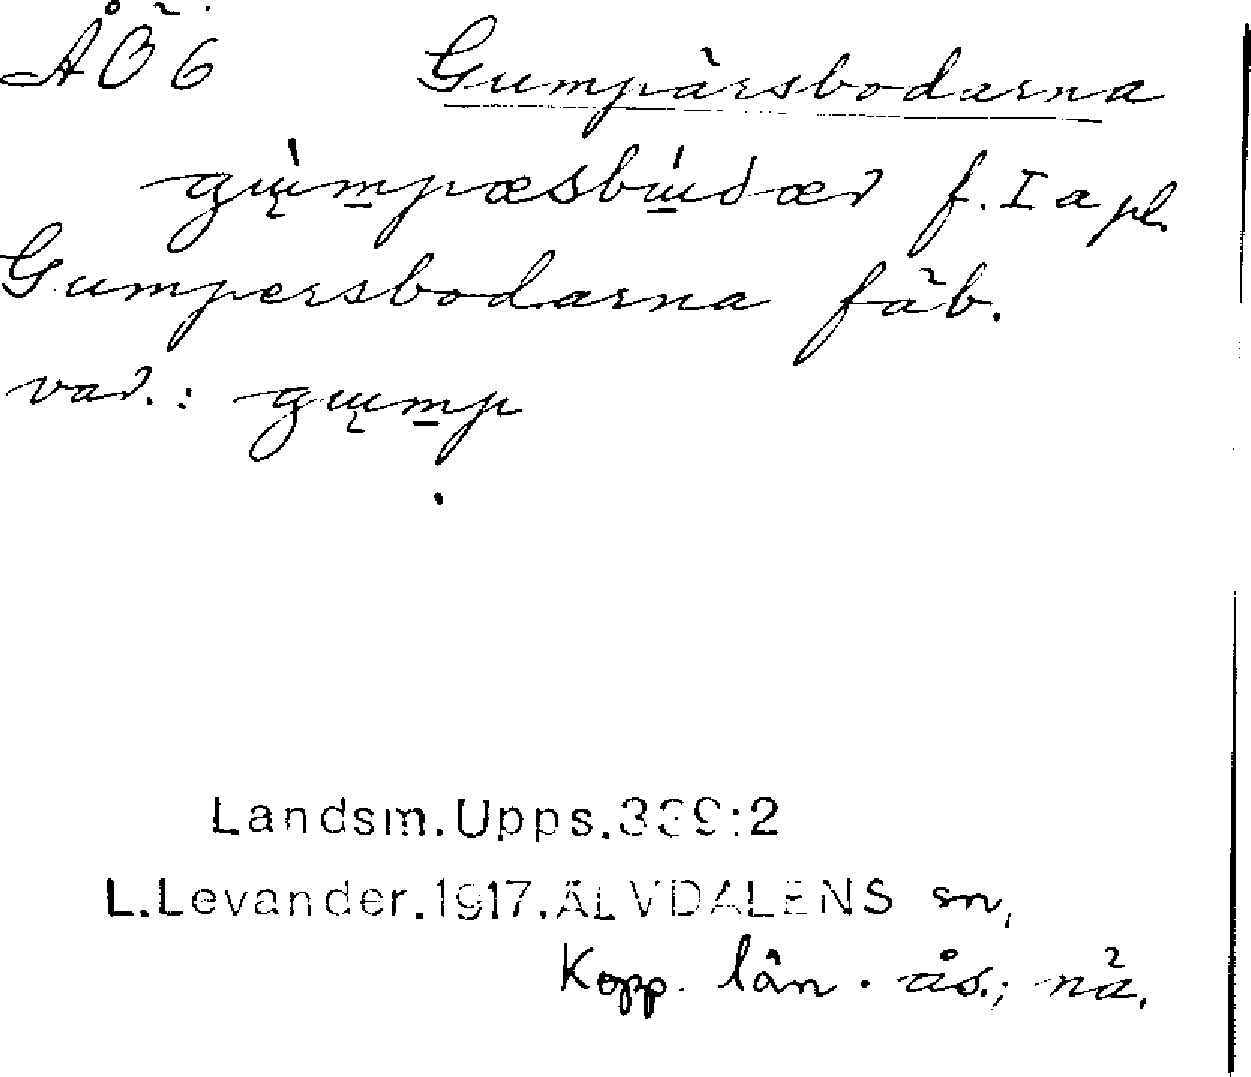 ÅÖ 6 Gumpärsbodarna
gɯ̨̀m̲pæsbɯ̲́dær f. I a pl.
Gumpersbodarna fäb.
var.: gɯ̨m̲p
Landsm.Upps.339:2
L.Levander.1917.ÄLVDALENS sn,
Kopp. län. ås.; nä.